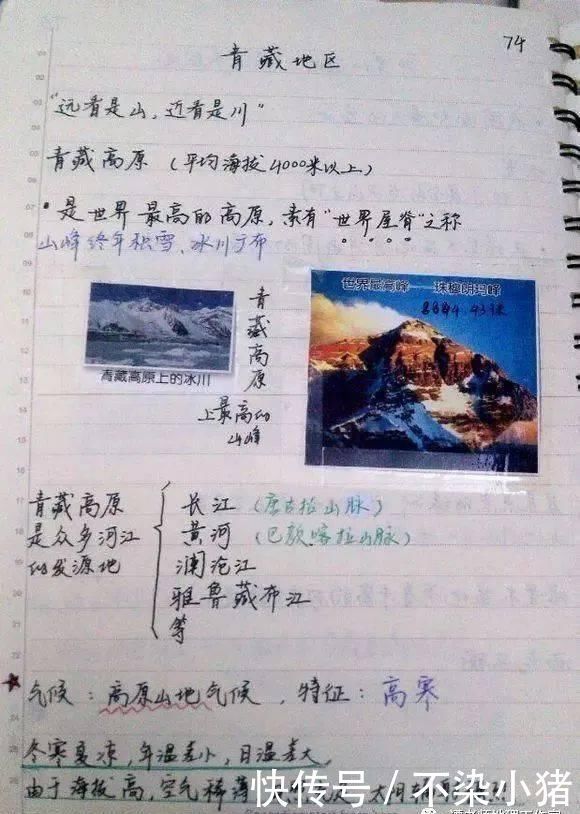 74
青藏地区
"远看是山，近看是川"
青藏高原（平均海拔4000米以上）
·是世界最高的高原，素有"世界屋脊"之称
山峰终年积雪、冰川广布
青藏高原上的冰川
青藏高原
上最高的
山峰
世界最高峰 珠穆朗玛峰
8844.43米
青藏高原
是众多河江
的发源地
长江（唐古拉山脉）
黄河（巴颜喀拉山脉）
澜沧江
雅鲁藏布江
等
气候：高原山地气候，特征：高寒
冬寒夏凉，年温差小，日温差大，
由于海拔高，空气稀薄
快传号 / 不染小猪